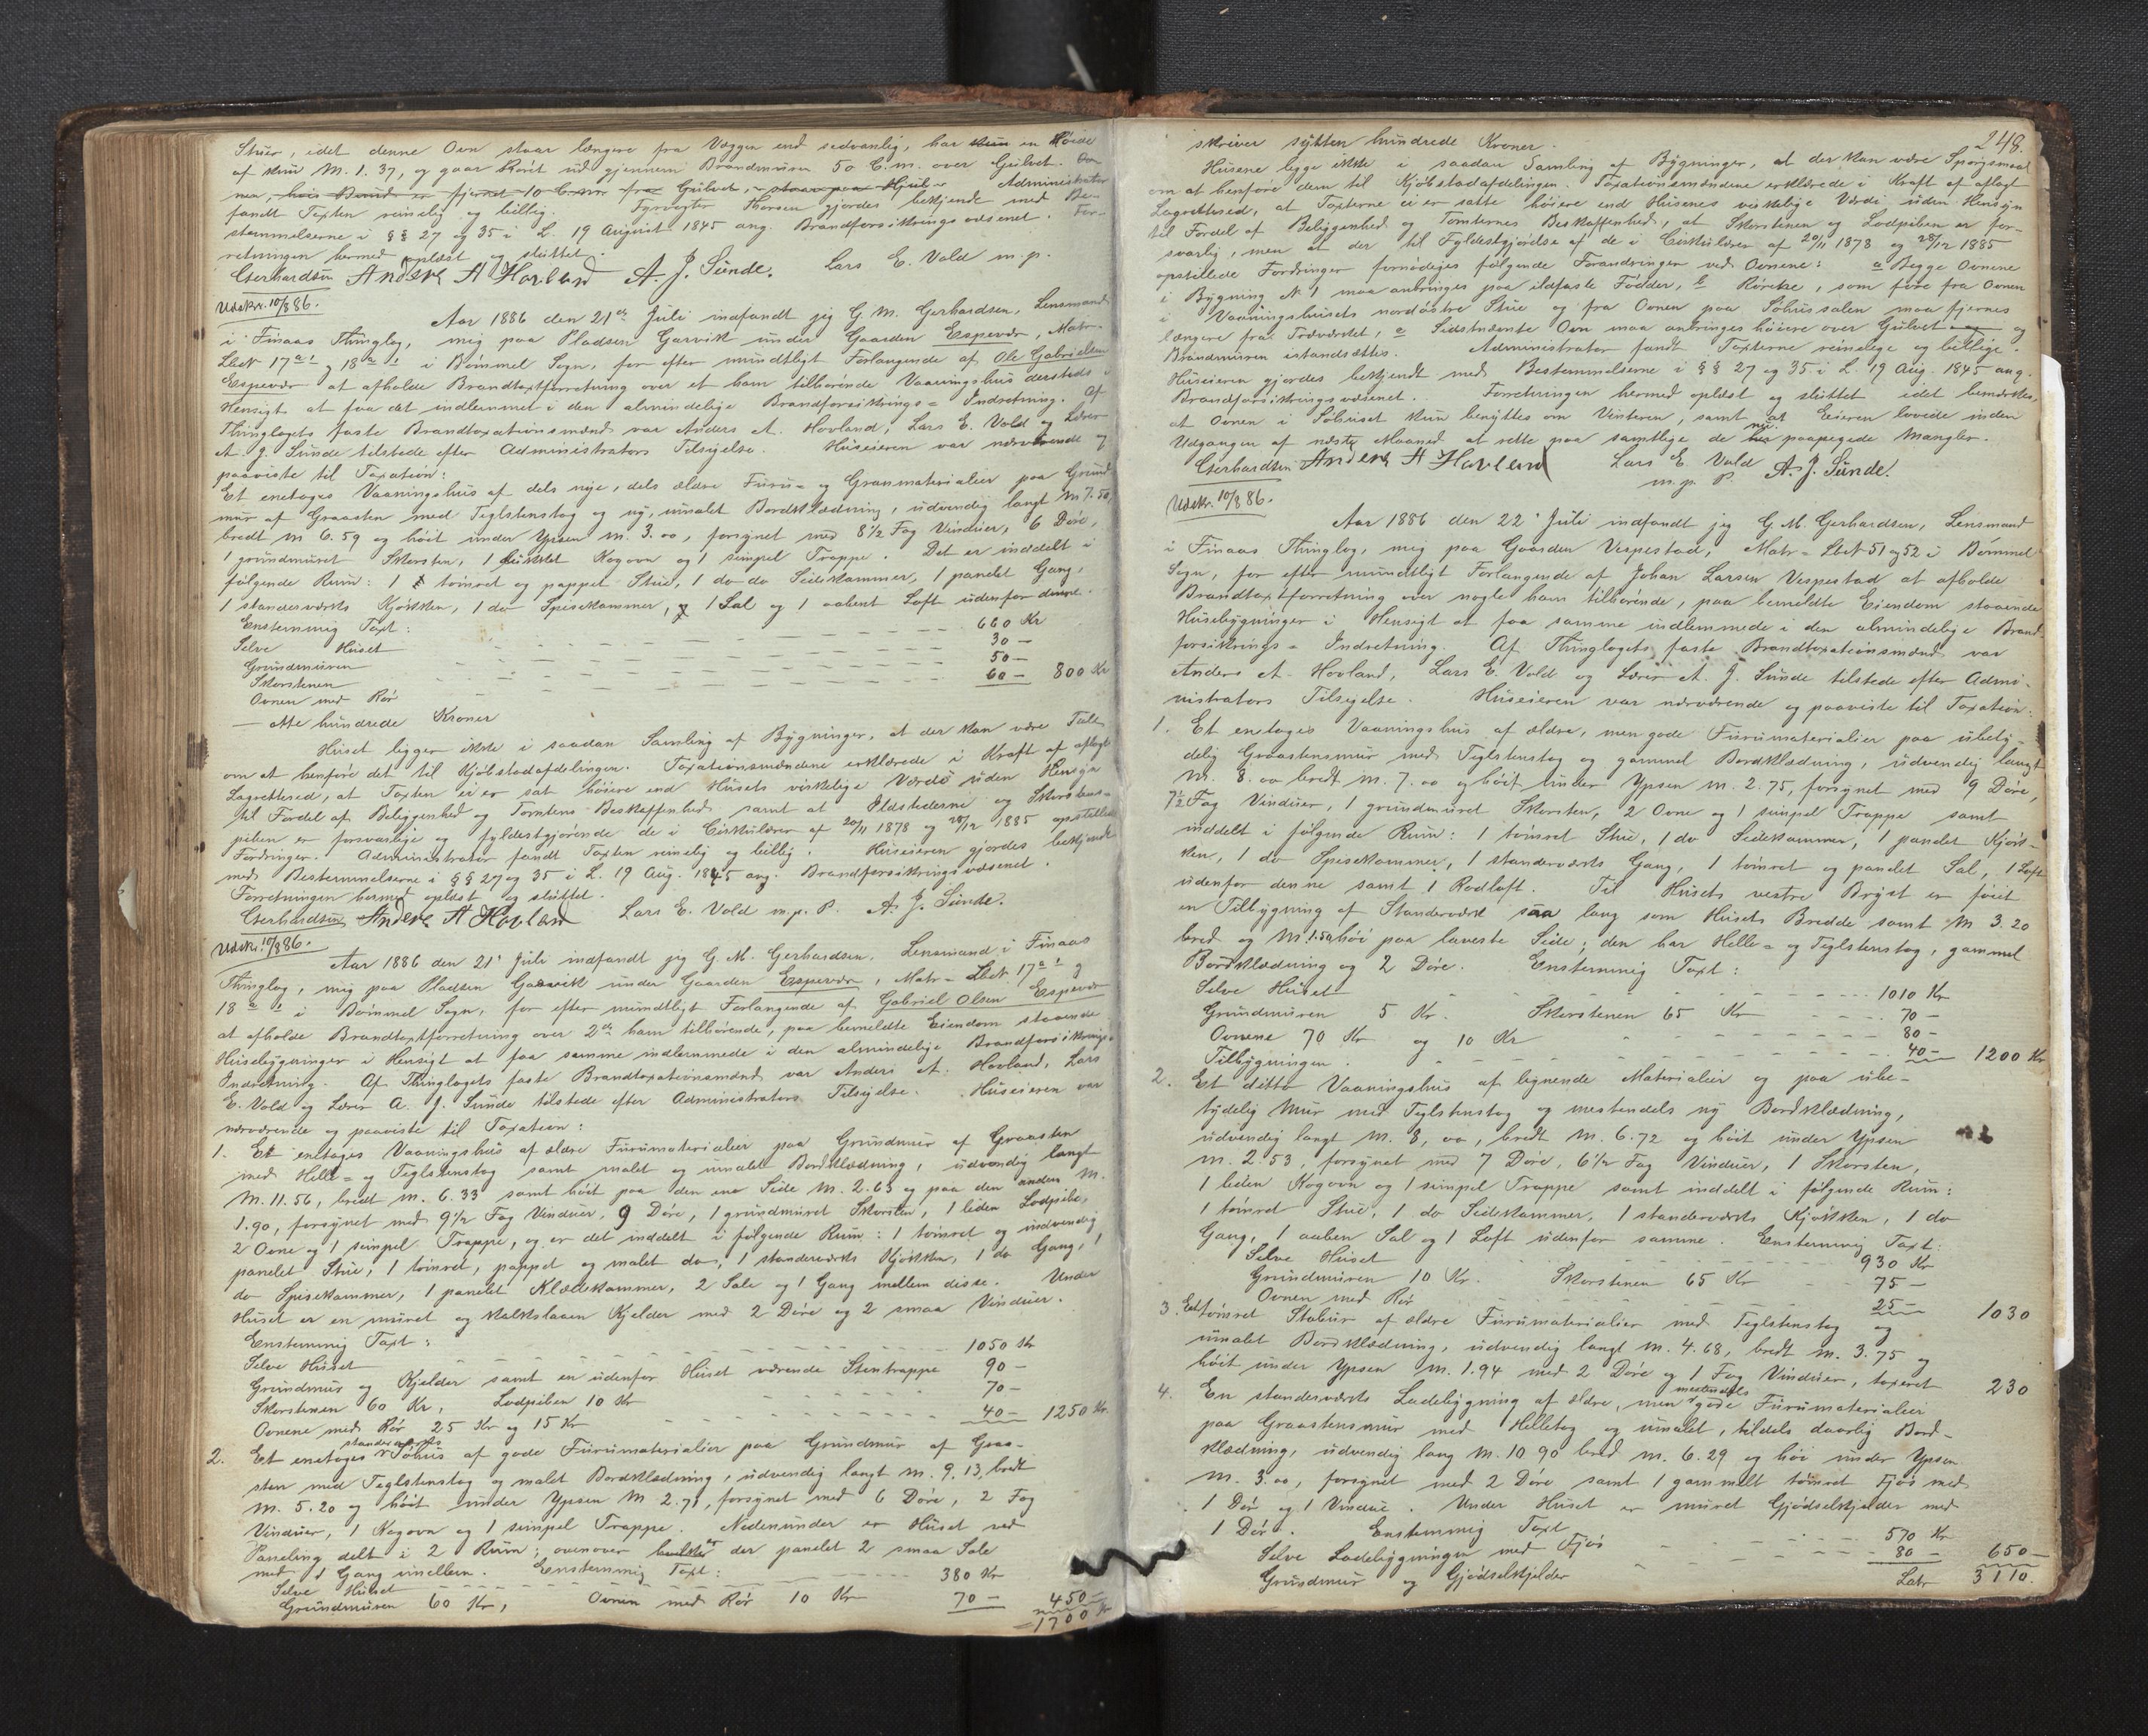 Stuer, idet denne Ovn staar længere fra Væggen end sedvanlig, har kun en Høide
af kun M. 1.37, og gaar Røret ud gjennem Brandmuren 50 C.m. over Gulvet. Ov
nen, hvis Bund er fjernet 10 C.m. fra Gulvet, staar paa Hjul. Administrator
fandt Taxten rimelig og billig. Fyrvogter Thorsen gjordes bekjendt med Be-
stemmelserne i §§ 27 og 35 i L. 19 August 1845 ang. Brandforsikringsvæsenet. For-
retningen hermed oplæst og sluttet.
Gerhardsen Anders A Hovland A. J. Sunde. Lars E. Vold m.p.
Udskr. 10/8 86.
Aar 1886 den 21de Juli indfandt jeg G. M. Gerhardsen, Lensmand
i Finaas Thinglag, mig paa Pladsen Garvik under Gaarden Espevær, Matr-
Lbnr 17 a 1 og 18 a 1 i Bømmel Sogn, for efter mundtligt Forlangende af Ole Gabrielsen
Espevær at afholde Brandtaxtforretning over et ham tilhørende Vaaningshus dersteds i
Hensigt at faa det indlemmet i den almindelige Brandforsikrings-Indretning. Af
Thinglagets faste Brandtaxationsmænd var Anders A. Hovland, Lars E. Vold og Lærer
A. J. Sunde tilstede efter Administrators Tilsigelse. Huseieren var nærværende og
paaviste til Taxation:
Et enetages Vaaningshus af dels nye, dels ældre Furu- og Granmaterialier paa Grund-
mur af Graasten med Teglstenstag og ny, umalet Bordklædning, udvendig langt M 7.50,
bredt M 6.59 og høit under Ypsen M. 3.00, forsynet med 8 1/2 Fag Vinduer, 6 Døre,
1 grundmuret Skorsten, 1 Kogovn og 1 simpel Trappe. Det er inddelt i
følgende Rum: 1 tømret og pappet Stue, 1 do do Sidekammer, 1 panelet Gang,
1 standerværks Kjøkken, 1 do Spisekammer, 1 Sal og 1 aabent Loft udenfor denne.
Enstemmig Taxt:
Selve Huset 660 Kr
Grundmuren 30 —
Skorstenen 50 —
Ovnen med Rør 60 — 800 Kr
— otte hundrede Kroner
Huset ligger ikke i saadan Samling af Bygninger, at der kan være Tale
om at henføre det til Kjøbstadafdelingen. Taxationsmændene erklærede i Kraft af aflagt
Lagrettesed, at Taxten ei er sat høiere end Husets virkelige Værdi uden Hensyn
til Fordel af Beliggenhed og Tomtens Beskaffenhed samt at Ildstederne og Skorstens-
piben er forsvarlige og fyldestgjørende de i Cirkulærer af 20/11 1878 og 28/12 1885 opstillede
Fordringer. Administrator fandt Taxten rimelig og billig. Huseieren gjordes bekjendt
med Bestemmelserne i §§ 27 og 35 i L. 19 Aug. 1845 ang. Brandforsikringsvæsenet.
Forretningen hermed oplæst og sluttet.
Gerhardsen Anders A Hovland Lars E. Vold m.p. P. A. J. Sunde.
Udskr. 10/8 86.
Aar 1886 den 21' Juli indfandt jeg G. M. Gerhardsen, Lensmand i Finaas
Thinglag, mig paa Pladsen Garvik under Gaarden Espevær, Matr-Lbnr 17 a 1 og
18 a 1 i Bømmel Sogn, for efter mundtligt Forlangende af Gabriel Olsen Espevær
at afholde Brandtaxtforretning over 2de ham tilhørende, paa bemeldte Eiendom staaende
Husebygninger i Hensigt at faa samme indlemmede i den almindelige Brandforsikrings-
Indretning. Af Thinglagets faste Brandtaxationsmænd var Anders A. Hovland, Lars
E. Vold og Lærer A. J. Sunde tilstede efter Administrators Tilsigelse. Huseieren var
nærværende og paaviste til Taxation:
1. Et enetages Vaaningshus af ældre Furumaterialier paa Grundmur af Graasten
med Helle- og Teglstenstag samt malet og umalet Bordklædning, udvendig langt
M. 11.56, bredt M. 6.33 samt høit paa den ene Side M. 2.63 og paa den anden M.
1.90, forsynet med 9 1/2 Fag Vinduer, 9 Døre, 1 grundmuret Skorsten, 1 liden Lodpibe,
2 Ovne og 1 simpel Trappe, og er det inddelt i følgende Rum: 1 tømret og indvendig
panelet Stue, 1 tømret, pappet og malet do, 1 standerværks Kjøkken, 1 do Gang, 1
do Spisekammer, 1 panelet Klædekammer, 2 Sale og 1 Gang mellem disse. Under
Huset er en muret og kalkslaaen Kjelder med 2 Døre og 2 smaa Vinduer.
Enstemmig Taxt:
Selve Huset 1050 Kr
Grundmur og Kjelder samt en udenfor Huset værende Stentrappe 90 —
Skorstenen 60 Kr, Lodpiben 10 Kr 70 —
Ovnene med Rør 25 Kr og 15 Kr 40 — 1250 Kr.
standerværks
2. Et enetages Søhus af gode Furumaterialier paa Grundmur af Graa-
sten med Teglstenstag og malet Bordklædning, udvendig langt M. 9.13, bredt
M. 5.20 og høit under Ypsen M 2.71, forsynet med 6 Døre, 2 Fag
Vinduer, 1 Kogovn og 1 simpel Trappe. Nedenunder er Huset ved
Paneling delt i 2 Rum; ovenover er der panelet 2 smaa Sale
med 1 Gang imellem. Enstemmig Taxt:
Selve Huset 380 Kr
Grundmuren 60 Kr, Ovnen med Rør 10 Kr 70 — 450 —
= 1700 Kr
248.
skriver sytten hundrede Kroner.
Husene ligge ikke i saadan Samling af Bygninger, at der kan være Spørgsmaal
om at henføre dem til Kjøbstadafdelingen. Taxationsmændene erklærede i Kraft af aflagt
Lagrettesed, at Taxterne ei er satte høiere end Husenes virkelige Værdi uden Hensyn
til Fordel af Beliggenhed og Tomternes Beskaffenhed, at Skorstenen og Lodpiben er for-
svarlig, men at der til Fyldestgjørelse af de i Cirkulærer af 20/11 1878 og 28/12 1885
opstillede Fordringer fornødiges følgende Forandringer ved Ovnene: a Begge Ovnene
i Bygning No 1 maa anbringes paa ildfaste Fødder, b Rørene, som føre fra Ovnen
i Vaaningshusets nordøstre Stue og fra Ovnen paa Søhussalen maa fjernes
længere fra Træværket, c Sidstnævnte Ovn maa anbringes høiere over Gulvet og
Brandmuren istandsættes. Administrator fandt Taxterne rimelige og billige.
Huseieren gjordes bekjendt med Bestemmelserne i §§ 27 og 35 i L. 19 Aug. 1845 ang.
Brandforsikringsvæsenet. Forretningen hermed oplæst og sluttet idet bemærkes,
at Ovnen i Søhuset kun benyttes om Vinteren, samt at Eieren lovede inden
Udgangen af næste Maaned at rette paa samtlige de nu paapegede Mangler.
Gerhardsen Anders A Hovland Lars E Vold A. J. Sunde.
m. p. P.
Udskr. 10/8 86.
Aar 1886 den 22' Juli indfandt jeg G. M. Gerhardsen, Lensmand
i Finaas Thinglag, mig paa Gaarden Vespestad, Matr-Lbnr 51 og 52 i Bømmel
Sogn, for efter mundtligt Forlangende af Johan Larsen Vespestad at afholde
Brandtaxtforretning over nogle ham tilhørende, paa bemeldte Eiendom staaende
Husebygninger i Hensigt at faa samme indlemmede i den almindelige Brand-
forsikrings-Indretning. Af Thinglagets faste Brandtaxationsmænd var
Anders A. Hovland, Lars E. Vold og Lærer A. J. Sunde tilstede efter Admi-
nistrators Tilsigelse. Huseieren var nærværende og paaviste til Taxation:
1. Et enetages Vaaningshus af ældre, men gode Furumaterialier paa ubety-
delig Graastensmur med Teglstenstag og gammel Bordklædning, udvendig langt
M. 8.00 bredt M. 7.00 og høit under Ypsen M. 2.75, forsynet med 9 Døre,
7 1/2 Fag Vinduer, 1 grundmuret Skorsten, 2 Ovne og 1 simpel Trappe samt
inddelt i følgende Rum: 1 tømret Stue, 1 do Sidekammer, 1 panelet Kjøk-
ken, 1 do Spisekammer, 1 standerværks Gang, 1 tømret og panelet Sal, 1 Loft
udenfor denne samt 1 Rodloft. Til Husets vestre Bryst er føiet
en Tilbygning af Standerværk saa lang som Husets Bredde samt M 3.20
bred og M. 1.50 høi paa laveste Side; den har Helle- og Teglstenstag, gammel
Bordklædning og 2 Døre. Enstemmig Taxt:
Selve Huset 1010 Kr
Grundmuren 5 Kr. Skorstenen 65 Kr 70 —
Ovnene 70 Kr og 10 Kr 80 —
Tilbygningen 40 — 1200 Kr
2. Et ditto Vaaningshus af lignende Materialier og paa ube-
tydelig Mur med Teglstenstag og mestendels ny Bordklædning,
udvendig langt M. 8,00, bredt M. 6.72 og høit under Ypsen
M. 2.53, forsynet med 7 Døre, 6 1/2 Fag Vinduer, 1 Skorsten,
1 liden Kogovn og 1 simpel Trappe samt inddelt i følgende Rum:
1 tømret Stue, 1 do Sidekammer, 1 standerværks Kjøkken, 1 do
Gang, 1 aaben Sal og 1 Loft udenfor samme. Enstemmig Taxt:
Selve Huset 930 Kr
Grundmuren 10 Kr. Skorstenen 65 Kr 75 —
Ovnen med Rør 25 — 1030
3. Et tømret Stabur af ældre Furumaterialier med Teglstenstag og
umalet Bordklædning, udvendig langt M. 4.68, bredt M. 3.75 og
høit under Ypsen M. 1.94 med 2 Døre og 1 Fag Vinduer, taxeret 230
mestendels
4. En standerværks Ladebygning af ældre, men gode Furumaterialier
paa Graastensmur med Helletag og umalet, tildels daarlig Bord-
klædning, udvendig lang M. 10 90 bred M. 6.29 og høi under Ypsen
M. 3.00, forsynet med 2 Døre samt 1 gammelt tømret Fjøs med
1 Dør og 1 Vindue. Under Huset er muret Gjødselkjelder med
1 Dør. Enstemmig Taxt
Selve Ladebygningen med Fjøs 570 Kr
Grundmur og Gjødselkjelder 80 — 650 —
Latr 3110.